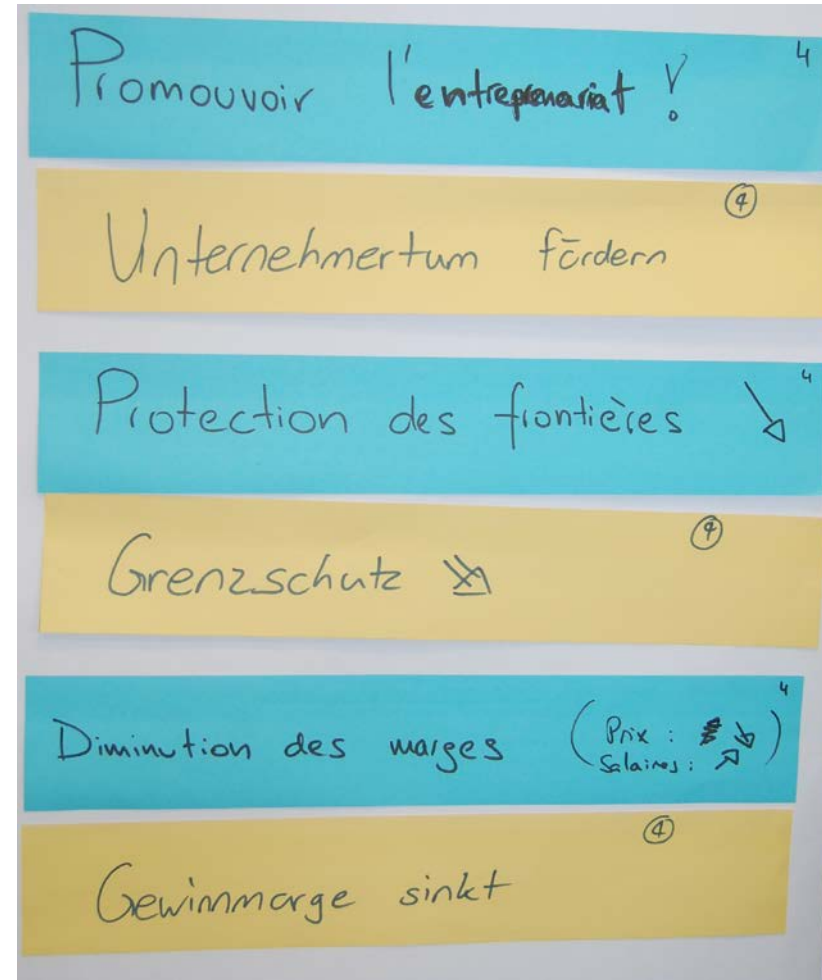 4
Promouvoir l'entreprenariat !
④
Unternehmertum fördern
4
Protection des frontières ↘
④
Grenzschutz ↘
4
Diminution des marges (Prix : ↘
Salaires : ↗)
④
Gewinnmarge sinkt